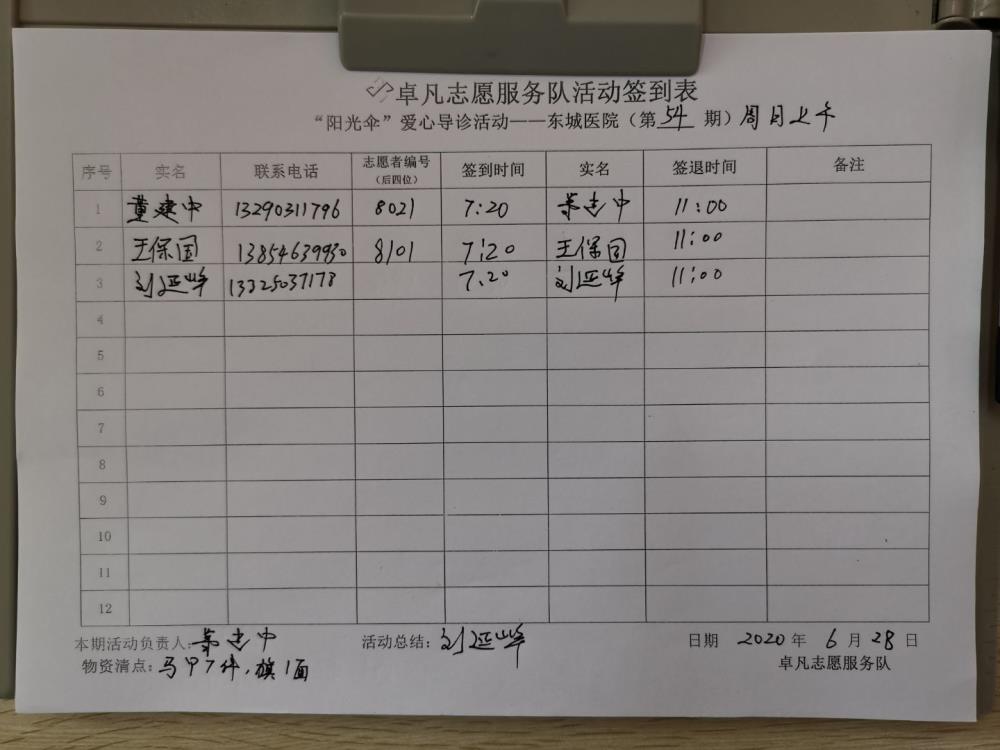 卓凡志愿服务队活动签到表
“阳光伞”爱心导诊活动——东城医院（第 54 期）周日上午
序号 实名 联系电话 志愿者编号（后四位） 签到时间 实名 签退时间 备注
1 董建中 13290311796 8021 7:20 董建中 11:00
2 王保国 13854639930 8101 7:20 王保国 11:00
3 刘延峰 13325037178 7:20 刘延峰 11:00
4
5
6
7
8
9
10
11
12
本期活动负责人: 董建中 活动总结: 刘延峰 日期 2020 年 6 月 28 日
物资清点: 马甲7件,旗1面 卓凡志愿服务队